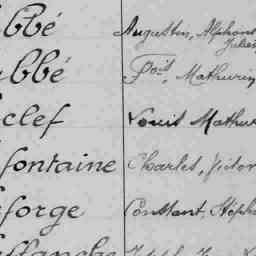 bbé Augustin, Alphons
Jules
bbé Fois, Mathurin
clef Louis Mathur
fontaine Charles, Victor
forge Constant, Stéph